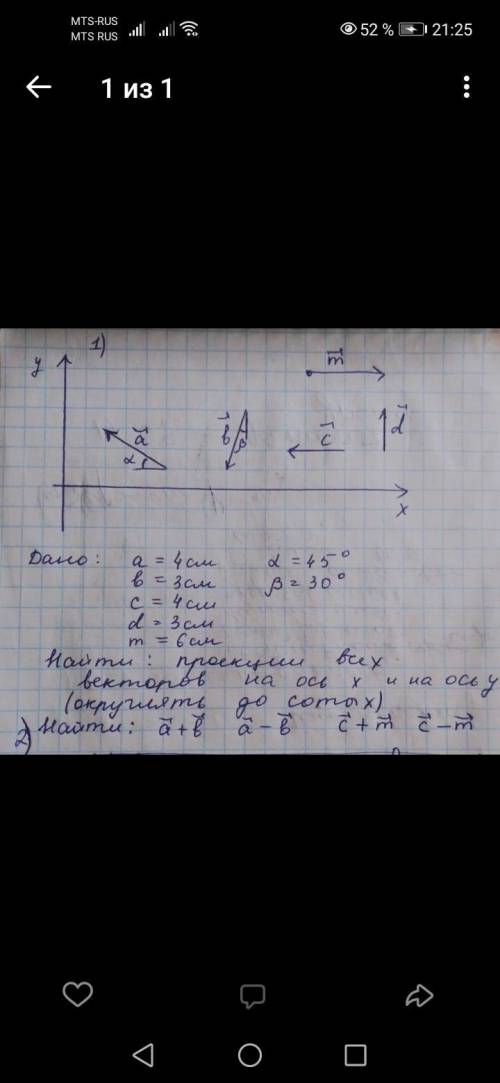 MTS-RUS
MTS RUS
52 %
21:25
1 из 1
1)
y
m
a
α
b
β
c
d
x
Дано: a = 4 см α = 45°
в = 3 см β = 30°
c = 4 см
d = 3 см
m = 6 см
Найти: проекции всех
векторов на ось x и на ось y
(округлять до сотых)
2) Найти: a⃗ + в⃗ a⃗ − в⃗ c⃗ + m⃗ c⃗ − m⃗